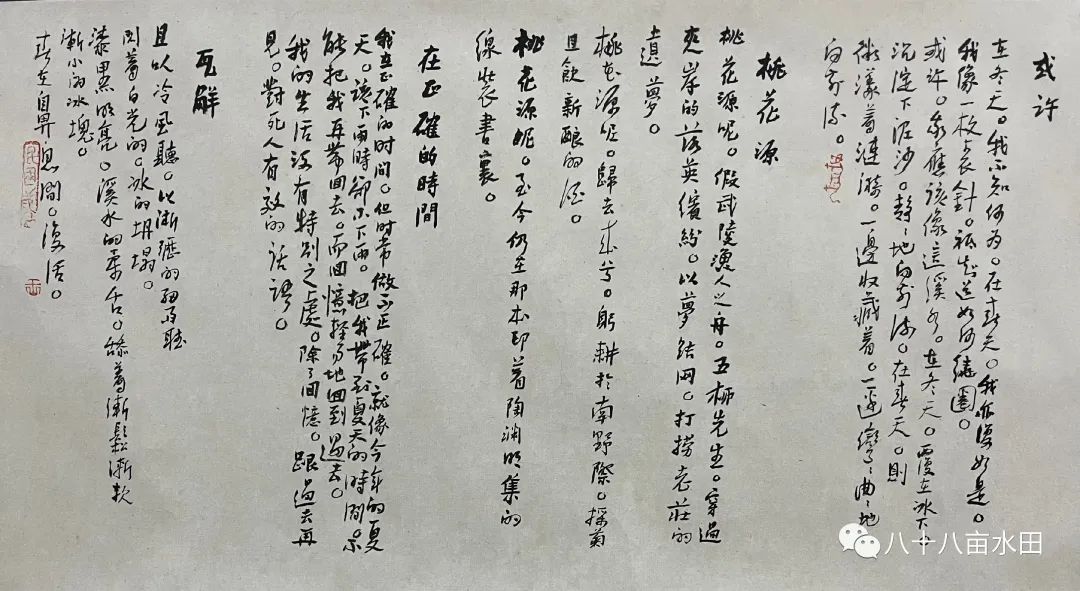 或许
在冬天。我不知何为。在春天。我亦復如是。
我像一枚表针。祇知道如何繞圈。
或许。我應该像這溪水。在冬天。覆在冰下。
沉淀下泥沙。静静地向前流。在春天。則
微漾著漣漪。一邊收藏著。一邊彎彎曲曲地
向前流。
桃花源
桃花源呢。假武陵漁人之舟。五柳先生。穿過
夹岸的落英缤纷。以夢结网。打捞老莊的
逍遥夢。
桃花源呢。歸去来兮。躬耕於南野際。採菊
且飲新酿的酒。
桃花源呢。至今仍在那本印着陶渊明集的
線裝書裏。
在正確的時間
我在正確的时间。但时常做不正確。就像今年的夏
天。該下雨時卻不下雨。把我帶到夏天的時間。不
能把我再带回去。而回憶輕易地回到過去。
我的生活没有特別之處。除了回憶。跟過去再
見。對死人有效的话語。
瓦解
且以冷風聽。以渐瀝的细雨聽
闪着白光的。冰的坍塌。
漆黑明亮。溪水的柔舌。舔着漸鬆漸软
漸小的冰塊。
春在鼻息間。復活。
八十八亩水田